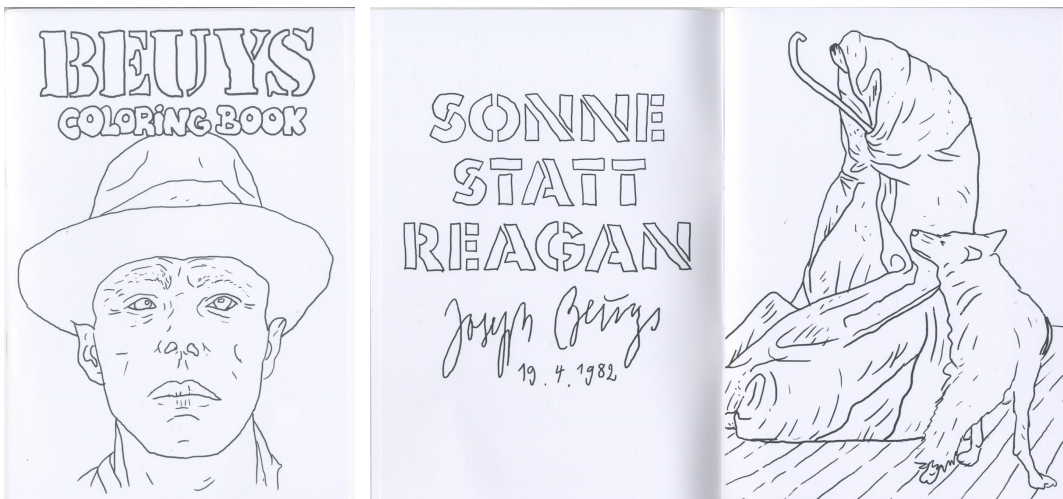 BEUYS
COLORiNG BOOK
SONNE
STATT
REAGAN
Joseph Beuys
19.4.1982